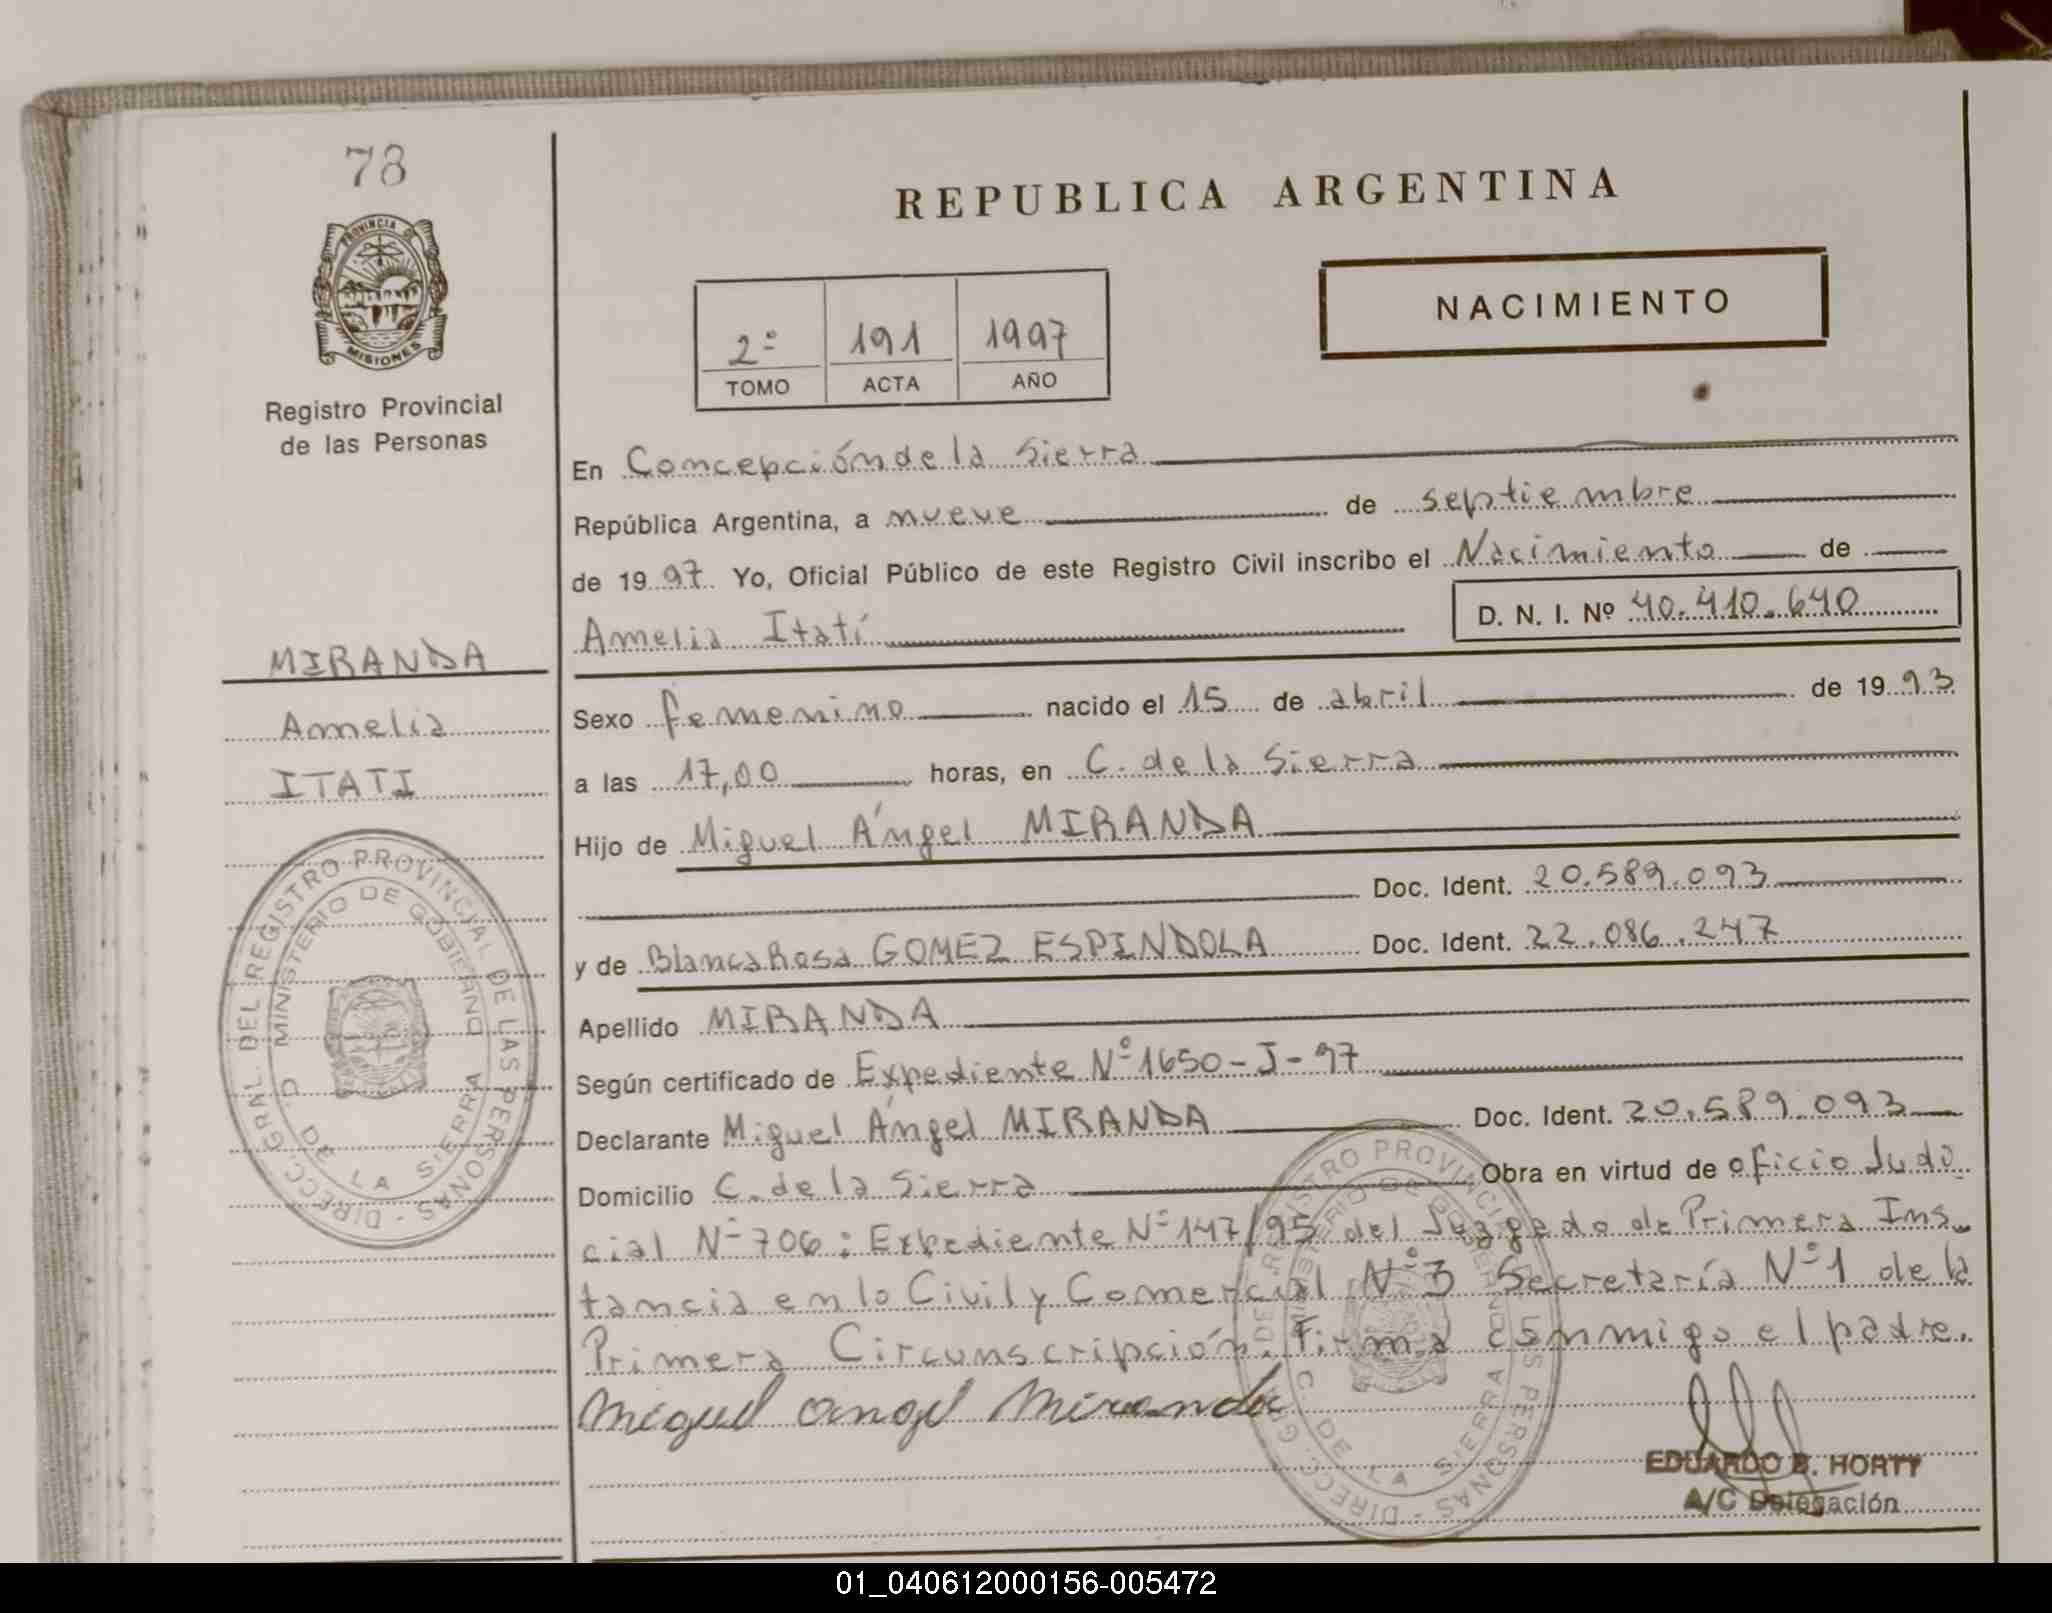 78
PROVINCIA DE
MISIONES
Registro Provincial
de las Personas
MIRANDA
Amelia
ITATI
DIRECC. GRAL. DEL REGISTRO PROVINCIAL DE LAS PERSONAS
MINISTERIO DE GOBIERNO
C. DE LA SIERRA
REPUBLICA ARGENTINA
NACIMIENTO
2º 191 1997
TOMO ACTA AÑO
En Concepción de la Sierra
República Argentina, a nueve de septiembre
de 1997 Yo, Oficial Público de este Registro Civil inscribo el Nacimiento de
Amelia Itatí D. N. I. Nº 40.410.640
Sexo femenino nacido el 15 de abril de 1993
a las 17,00 horas, en C. de la Sierra
Hijo de Miguel Ángel MIRANDA
Doc. Ident. 20.589.093
y de Blanca Rosa GOMEZ ESPINDOLA Doc. Ident. 22.086.247
Apellido MIRANDA
Según certificado de Expediente Nº 1650-J-97
Declarante Miguel Ángel MIRANDA Doc. Ident. 20.589.093
Domicilio C. de la Sierra Obra en virtud de oficio Judi
cial Nº 706: Expediente Nº 147/95 del Juzgado de Primera Ins
tancia en lo Civil y Comercial Nº 3 Secretaría Nº 1 de la
Primera Circunscripción. Firma conmigo el padre.
Miguel angel Miranda
DIRECC. GRAL. DE REGISTRO PROVINCIAL DE LAS PERSONAS
MINISTERIO DE GOBIERNO
C. DE LA SIERRA
EDUARDO B. HORTT
A/C Delegación
01_040612000156-005472